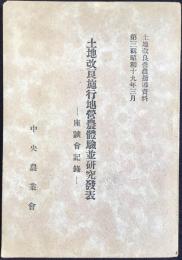 土地改良營農指導資料
第三輯昭和十九年三月
土地改良施行地營農體驗並研究發表
―座談會記錄―
中央農業會